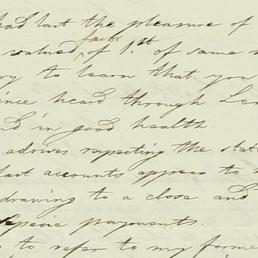 had last the pleasure of
favor
valued of 1.st of same
to learn that you
since heard through
and in good health.
advices respecting the
last accounts appear to
drawing to a close and
specie payments.
to refer to my former